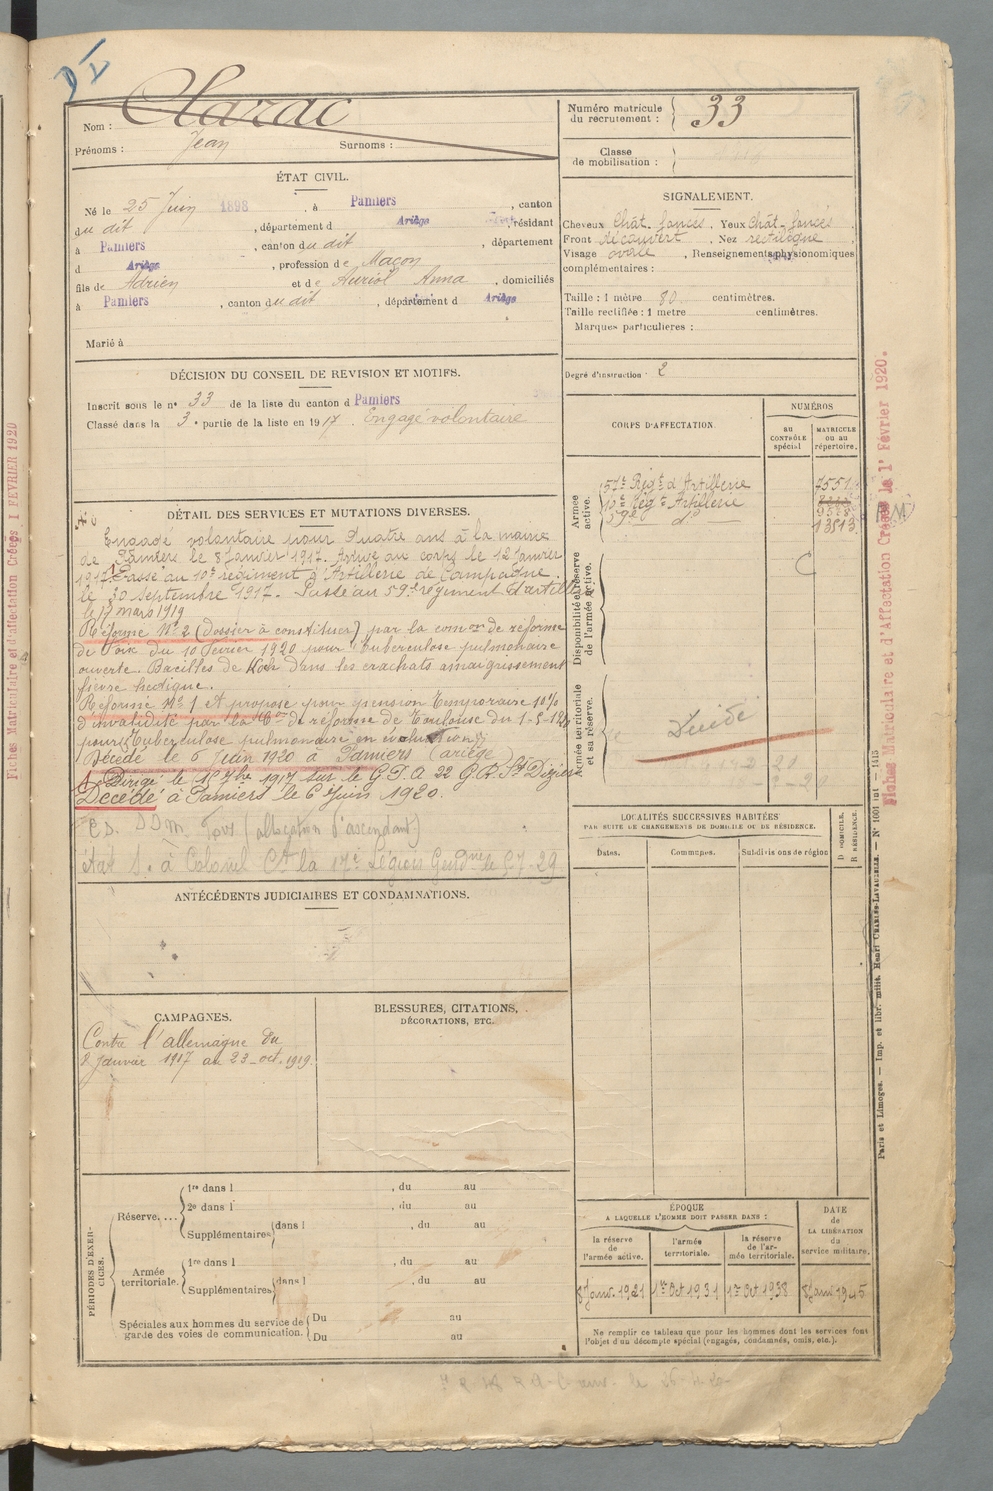 Clarac
Nom :
Prénoms : Jean Surnoms :
Numéro matricule
du recrutement : 33
Classe
de mobilisation :
ÉTAT CIVIL.
Né le 25 Juin 1898 , à Pamiers , canton
du dit , département d Ariège , résidant
à Pamiers , canton du dit , département
d Ariège , profession de Maçon
fils de Adrien et de Auriol Anna , domiciliés
à Pamiers , canton du dit , département d Ariège
Marié à
SIGNALEMENT.
Cheveux Chât. foncés . Yeux Chât. foncés
Front découvert . Nez rectiligne
Visage ovale , Renseignements physionomiques
complémentaires :
Taille : 1 mètre 80 centimètres.
Taille rectifiée : 1 mètre centimètres.
Marques particulières :
Degré d'instruction 2
DÉCISION DU CONSEIL DE REVISION ET MOTIFS.
Inscrit sous le n° 33 de la liste du canton d Pamiers
Classé dans la 3e partie de la liste en 1917 . Engagé volontaire
CORPS D'AFFECTATION.
NUMÉROS
au
CONTRÔLE
spécial
MATRICULE
ou au
répertoire.
Armée
active.
57e Régt d'Artillerie 7551
10e Régt Artillerie
59e do 13813
Disponibilité et réserve
de l'armée active.
Armée territoriale
et sa réserve.
DÉTAIL DES SERVICES ET MUTATIONS DIVERSES.
Engagé volontaire pour Quatre ans à la mairie
de Pamiers le 8 Janvier 1917. Arrivé au corps le 12 Janvier
1917. Passé au 10e régiment d'Artillerie de Campagne.
le 30 Septembre 1917. Passé au 59e régiment d'artillie
le 17 mars 1919
Réformé No 2 (dossier à constituer) par la comon de réforme
de Foix du 10 Février 1920 pour Tuberculose pulmonaire
ouverte. Bacilles de Koch dans les crachats amaigrissement
fièvre hectique.
Réformé No 1 et proposé pour pension temporaire 10%
d'invalidité par la Con de réforme de Toulouse du
pour Tuberculose pulmonaire en évolution
Décédé le 6 Juin 1920 à Pamiers (ariège)
Dirigé le 7bre 1917 sur le G.P.A 22 G.R. St Dizier
Décédé à Pamiers le 6 Juin 1920.
(allocation d'ascendant)
état S. à Colonel Ct la 17e Légion Gendrie le
ANTÉCÉDENTS JUDICIAIRES ET CONDAMNATIONS.
LOCALITÉS SUCCESSIVES HABITÉES
PAR SUITE DE CHANGEMENTS DE DOMICILE OU DE RÉSIDENCE.
Dates. Communes. Subdivisions de région
D. DOMICILE.
R. RÉSIDENCE.
CAMPAGNES.
Contre l'allemagne du
8 Janvier 1917 au 23 oct. 1919.
BLESSURES, CITATIONS,
DÉCORATIONS, ETC.
PÉRIODES D'EXER-
CICES.
Réserve....
1re dans l , du au
2e dans l , du au
Supplémentaires dans l , du au
Armée
territoriale.
1re dans l , du au
Supplémentaires dans l , du au
Spéciales aux hommes du service de
garde des voies de communication.
Du au
Du au
ÉPOQUE
A LAQUELLE L'HOMME DOIT PASSER DANS :
la réserve
de
l'armée active.
l'armée
territoriale.
la réserve
de l'ar-
mée territoriale.
DATE
de
LA LIBÉRATION
du
service militaire.
8 Janv. 1921 1er Oct 1931 1er Oct 1938 8 Janv 1945
Ne remplir ce tableau que pour les hommes dont les services font
l'objet d'un décompte spécial (engagés, condamnés, omis, etc.).
Fiches Matriculaire et d'Affectation Créées le 1er Février 1920.
Fiches Matriculaire et d'affectation Créées 1 FEVRIER 1920
Paris et Limoges. — Imp. et libr. milit. Henri CHARLES-LAVAUZELLE. — N° 1001 int — 1415